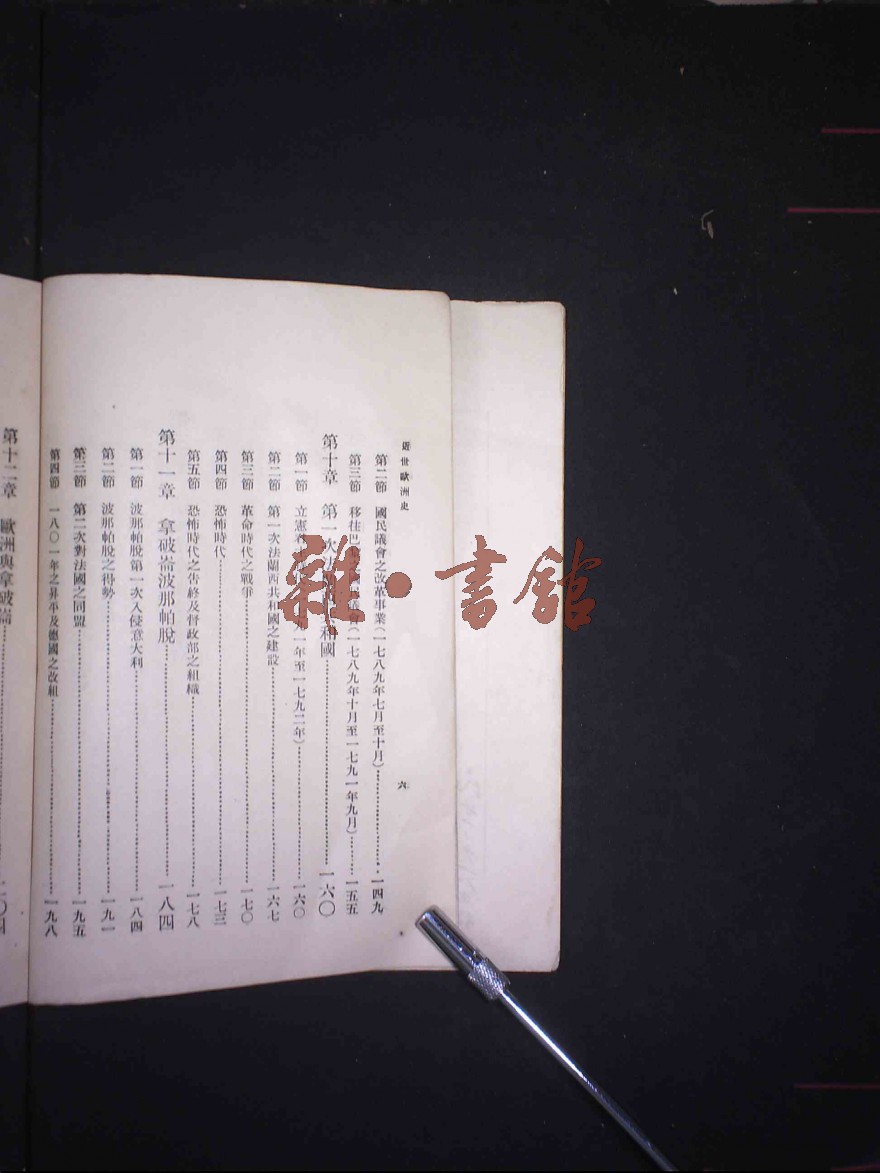 近世歐洲史
六
第二節 國民議會之改革事業(一七八九年七月至十月) 一四九
第三節 移往巴 會(一七八九年十月至一七九一年九月) 一五五
第十章 第一次法 和國 一六〇
第一節 立憲 九一年至一七九二年) 一六〇
第二節 第一次法蘭西共和國之建設 一六七
第三節 革命時代之戰爭 一七〇
第四節 恐怖時代 一七三
第五節 恐怖時代之告終及督政部之組織 一七八
第十一章 拿破崙波那帕脫 一八四
第一節 波那帕脫第一次入侵意大利 一八四
第二節 波那帕脫之得勢 一九一
第三節 第二次對法國之同盟 一九五
第四節 一八〇一年之昇平及德國之改組 一九八
第十二章 歐洲與拿破崙
雜·書館